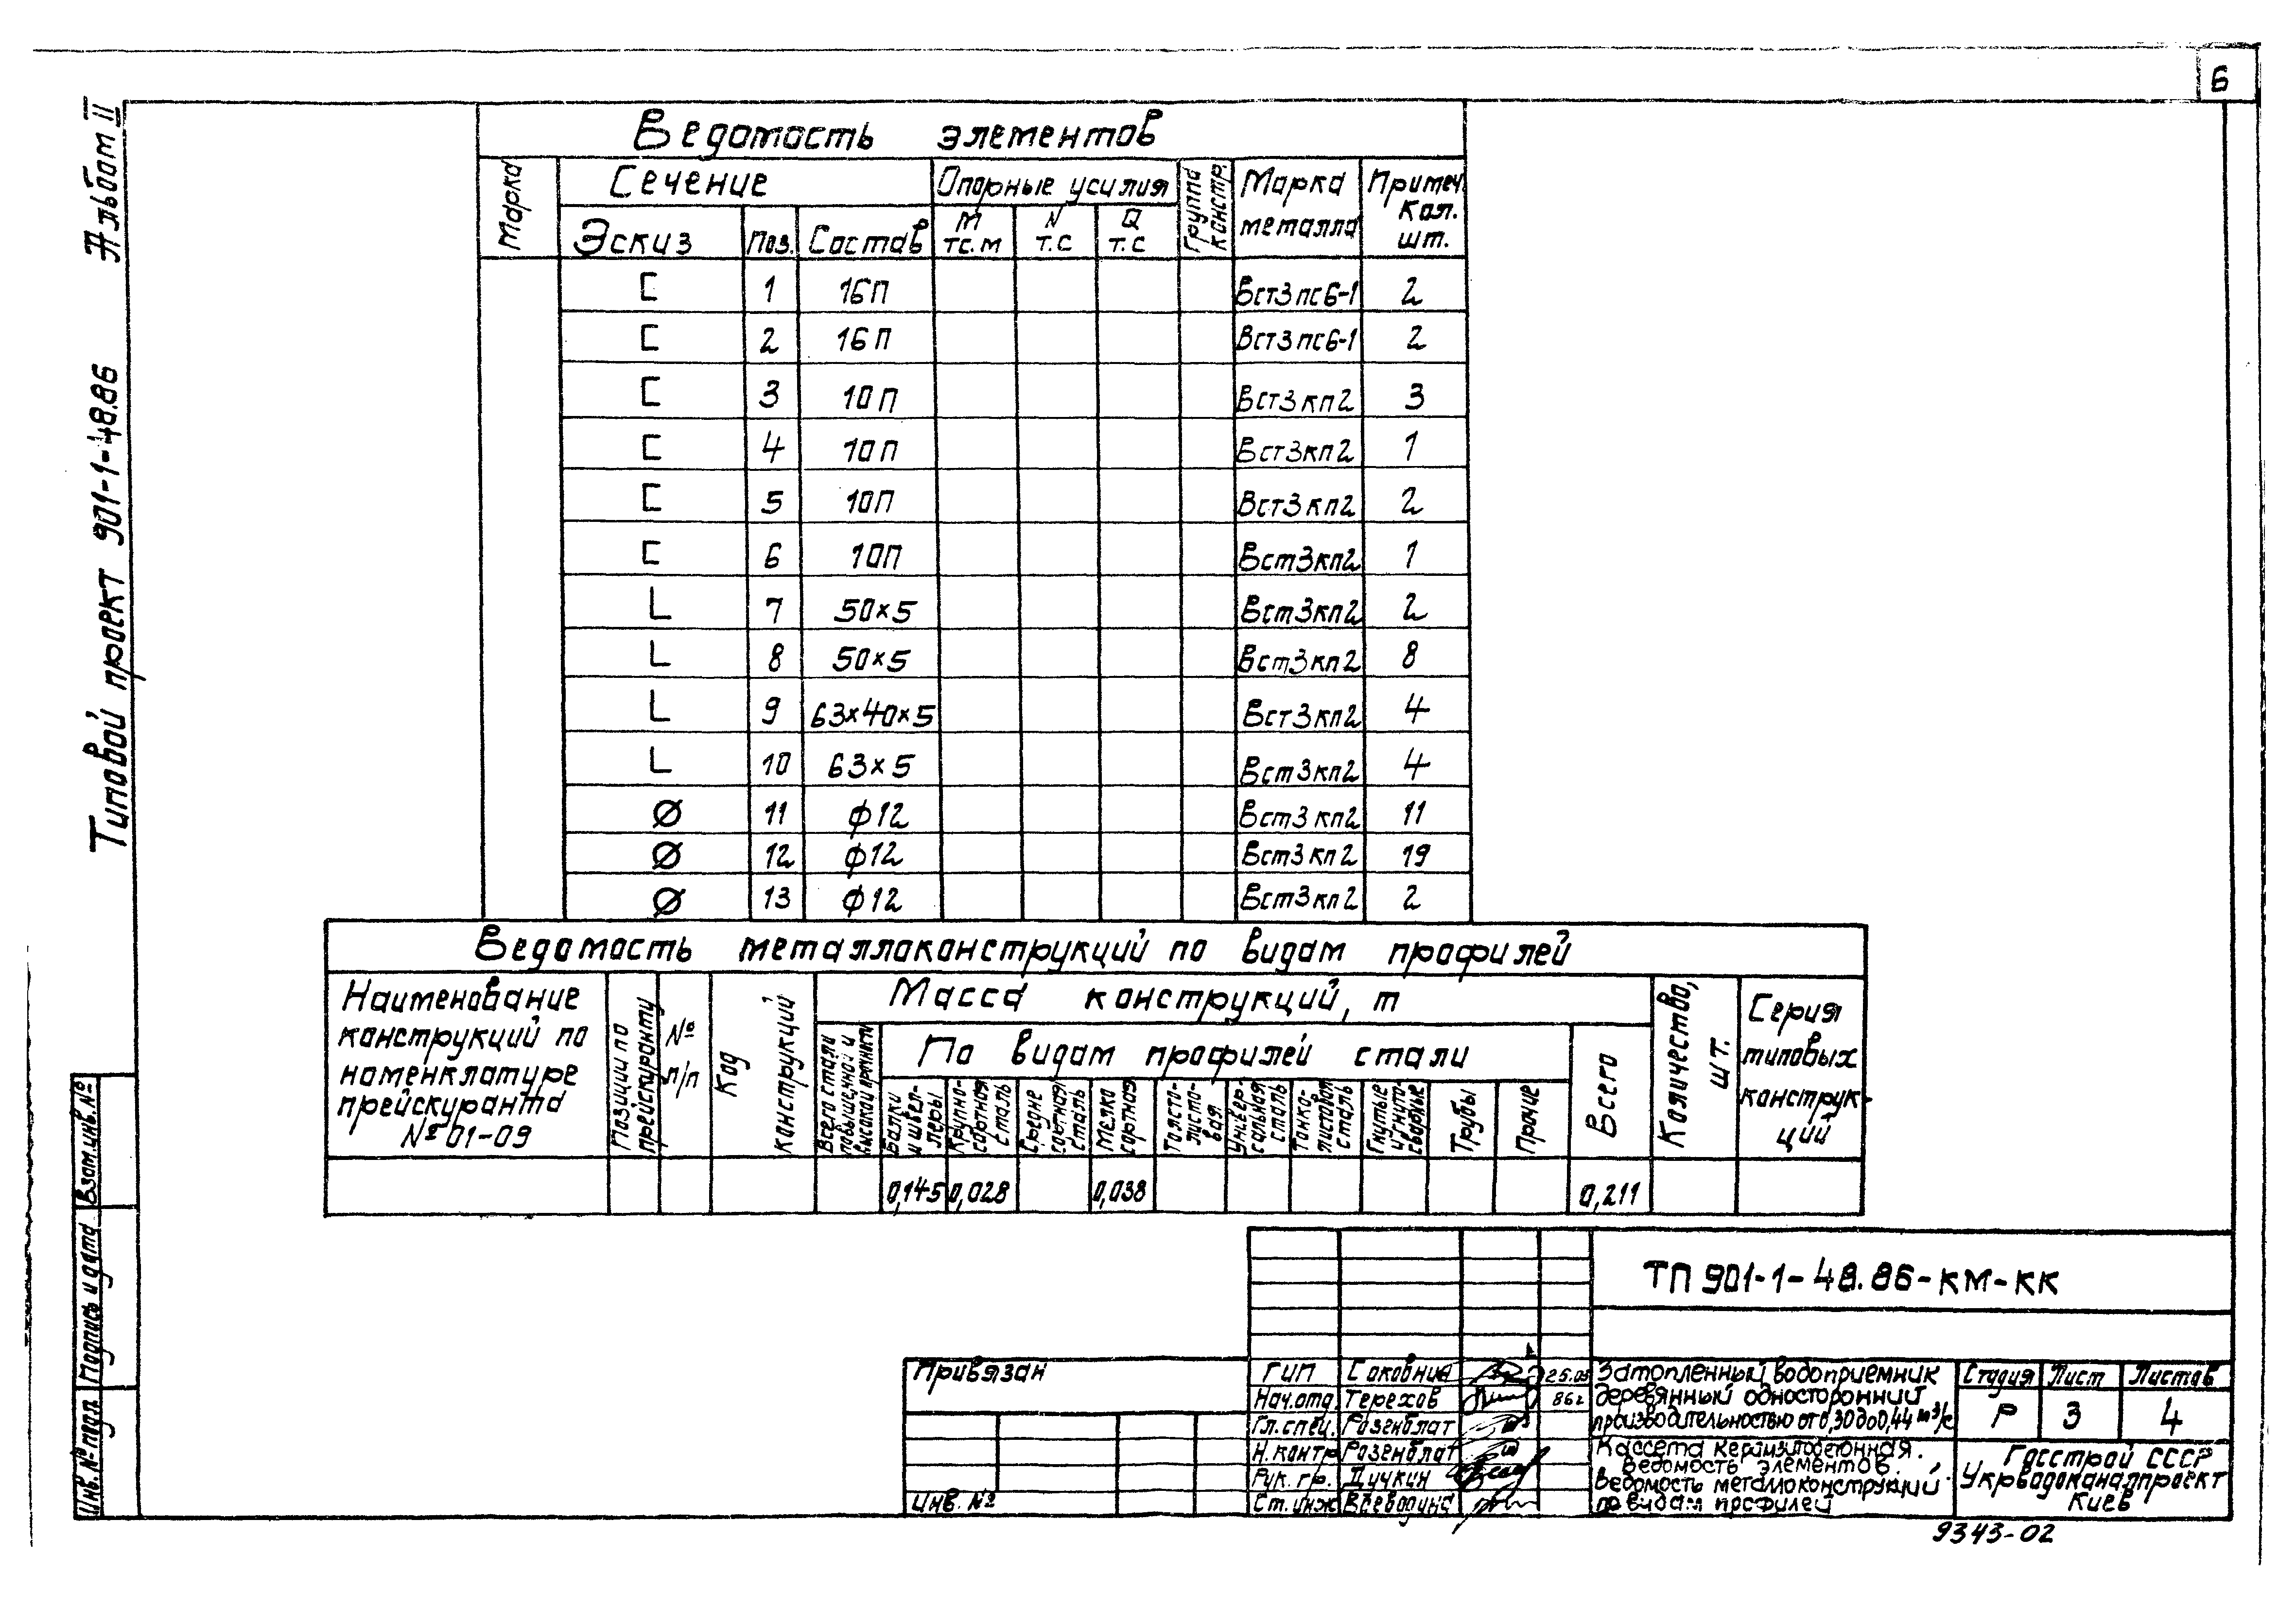 6
Альбом II
Типовой проект 901-1-48.86
Ведомость элементов
Марка
Сечение
Опорные усилия
Группа констр.
Марка металла
Примеч. Кол. шт.
Эскиз
Поз.
Состав
М тс.м
N т.с
Q т.с
[ 1 16П Вст3пс6-1 2
[ 2 16П Вст3пс6-1 2
[ 3 10П Вст3кп2 3
[ 4 10П Вст3кп2 1
[ 5 10П Вст3кп2 2
[ 6 10П Вст3кп2 1
L 7 50×5 Вст3кп2 2
L 8 50×5 Вст3кп2 8
L 9 63×40×5 Вст3кп2 4
L 10 63×5 Вст3кп2 4
Ø 11 ф12 Вст3кп2 11
Ø 12 ф12 Вст3кп2 19
Ø 13 ф12 Вст3кп2 2
Ведомость металлоконструкций по видам профилей
Наименование
конструкций по
номенклатуре
прейскуранта
№ 01-09
Позиции по прейскуранту
№ п/п
Код конструкций
Масса конструкций, т
Всего стали повышенной и высокой прочности
По видам профилей стали
Балки и швеллеры
Крупносортная сталь
Среднесортная сталь
Мелкосортная
Толстолистовая
Универсальная сталь
Тонколистовая сталь
Гнутые и гнутосварные
Трубы
Прочие
Всего
Количество, шт.
Серия
типовых
конструк-
ций
0,145 0,028 0,038 0,211
ТП 901-1-48.86-КМ-КК
Привязан
Инв. №
ГИП
Нач.отд. Терехов 86г
Гл.спец. Розенблат
Н.контр Розенблат
Рук. гр. Дучкин
Ст.инж
Затопленный водоприемник
деревянный односторонний
производительностью от 0,30 до 0,44 м3/с
Кассета керамзитобетонная.
Ведомость элементов.
Ведомость металлоконструкций
по видам профилей
Стадия Лист Листов
Р 3 4
Госстрой СССР
Укрводоканалпроект
Киев
9343-02
Взам.инв.№
Подпись и дата
Инв.№ подл.